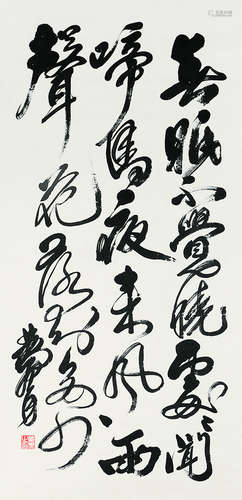 春眠不覺曉處處聞
啼鳥夜來風雨
聲花落知多少